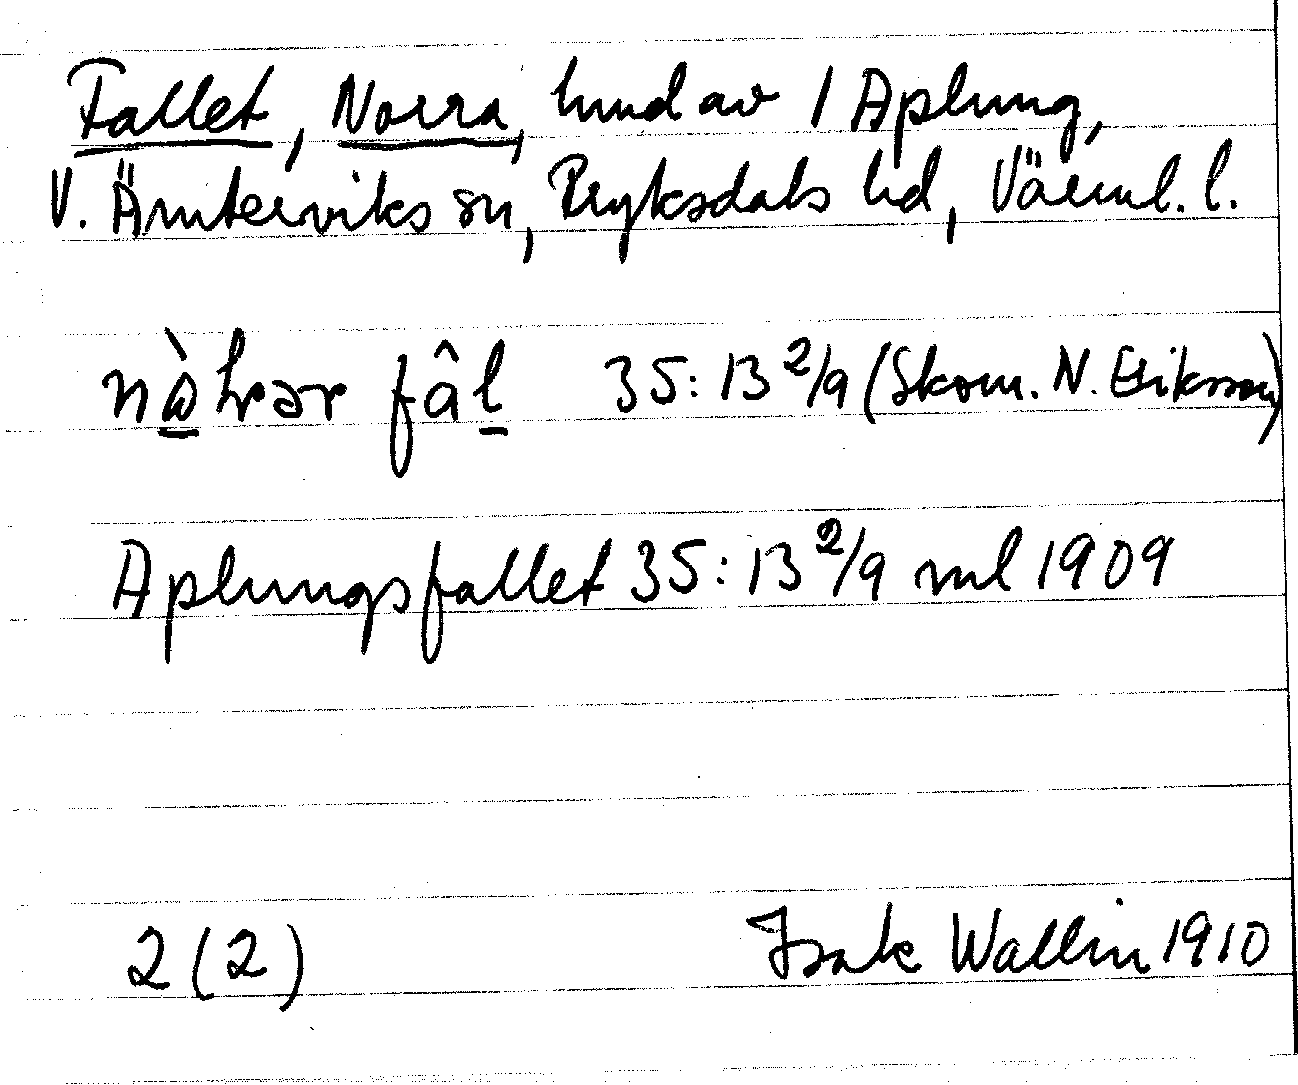 Fallet, Norra, hmd av 1 Aplung,
V. Ämterviks sn, Fryksdals hd, Värml. l.
35:13 2/9 (Skom. N. Eriksson)
Aplungsfallet 35:13 2/9 ml 1909
2 (2) Isak Wallin 1910